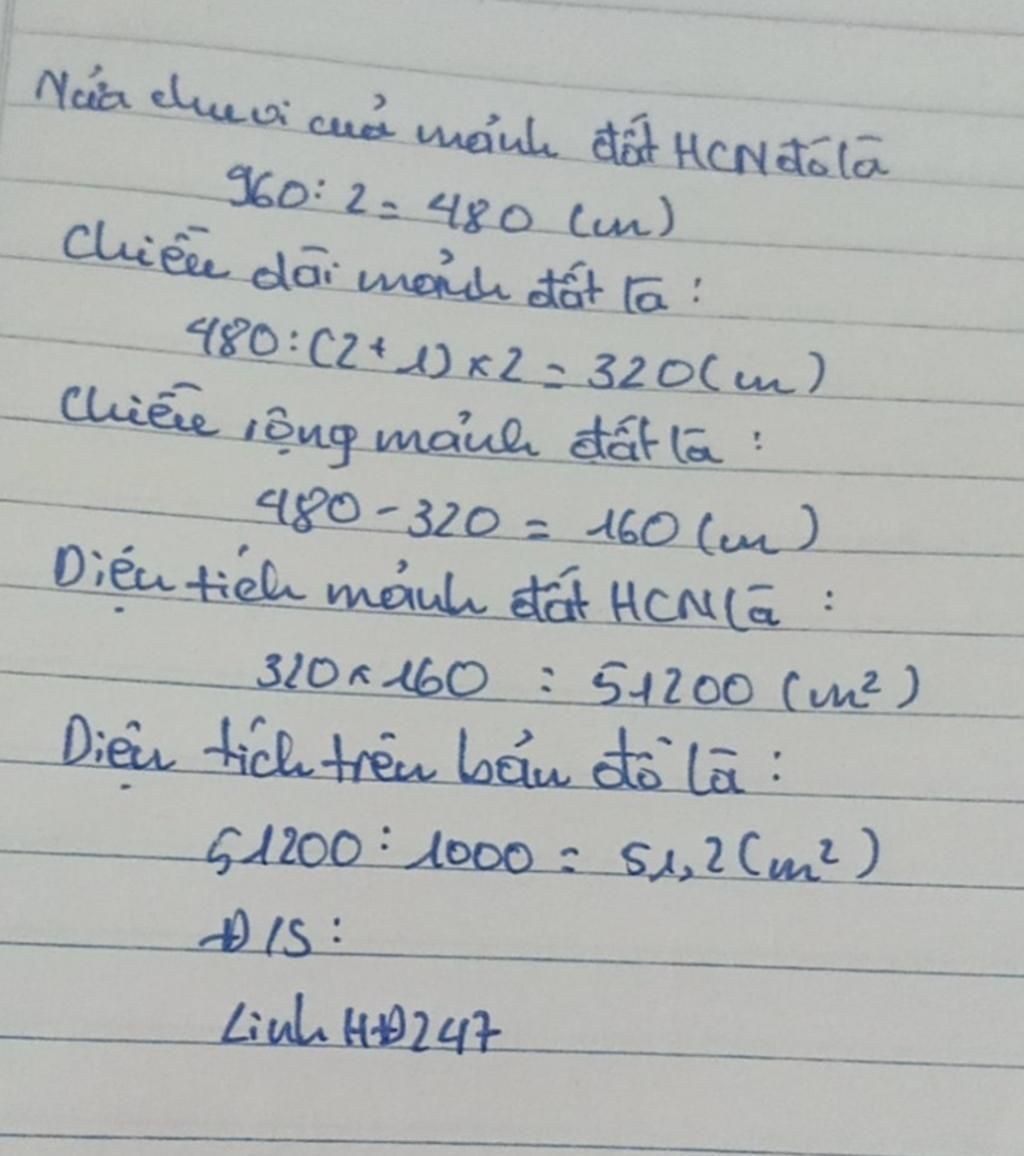 Nửa chu vi của mảnh đất HCN đó là
960 : 2 = 480 (m)
Chiều dài mảnh đất là :
480 : (2 + 1) x 2 = 320 (m)
Chiều rộng mảnh đất là :
480 - 320 = 160 (m)
Diện tích mảnh đất HCN là :
320 x 160 = 51200 (m²)
Diện tích trên bản đồ là :
51200 : 1000 = 51,2 (m²)
Đ/S :
Linh HĐ247